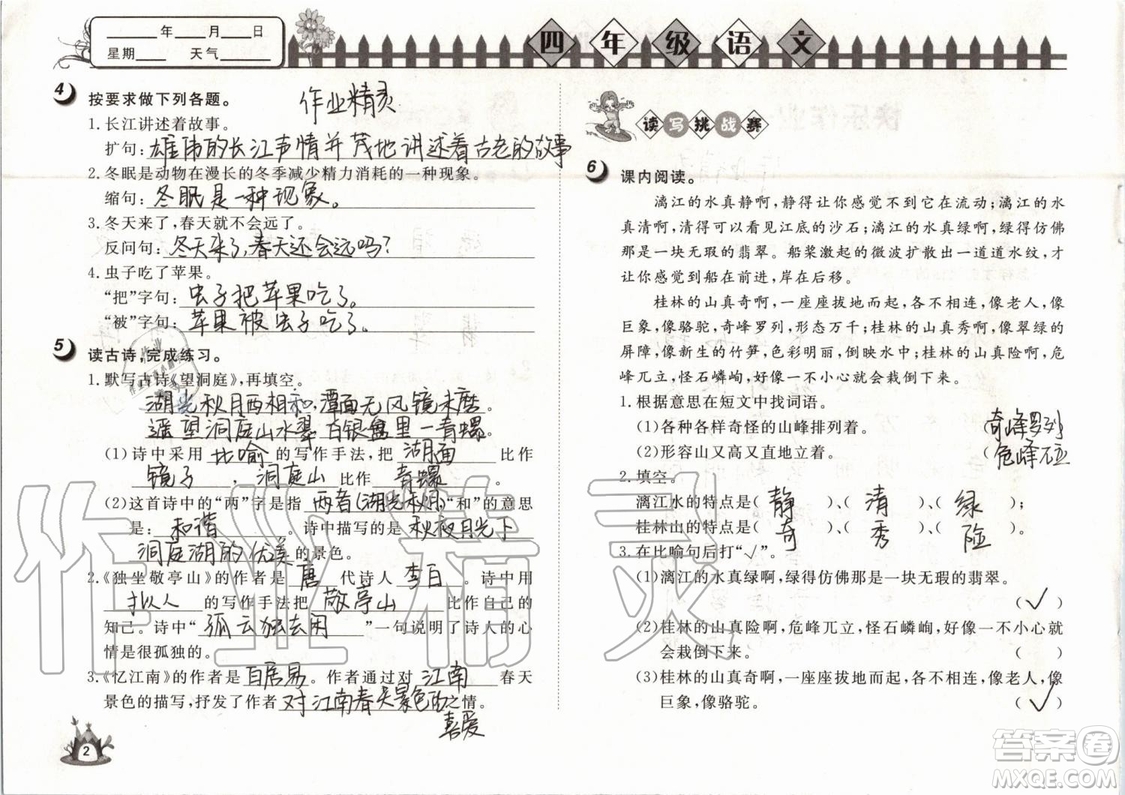 ____年____月____日
星期____ 天气______
四年级语文
4 按要求做下列各题。 作业精灵
1.长江讲述着故事。
扩句:雄伟的长江声情并茂地讲述着古老的故事
2.冬眠是动物在漫长的冬季减少精力消耗的一种现象。
缩句:冬眠是一种现象。
3.冬天来了,春天就不会远了。
反问句:冬天来了,春天还会远吗?
4.虫子吃了苹果。
“把”字句:虫子把苹果吃了。
“被”字句:苹果被虫子吃了。
5 读古诗,完成练习。
1.默写古诗《望洞庭》,再填空。
湖光秋月两相和,潭面无风镜未磨。
遥望洞庭山水翠 白银盘里一青螺
(1)诗中采用 比喻 的写作手法,把 湖面 比作
镜子 , 洞庭山 比作 青螺 。
(2)这首诗中的“两”字是指 两者(湖光秋月) “和”的意思
是: 和谐 诗中描写的是 秋夜月光下
洞庭湖的优美 的景色。
2.《独坐敬亭山》的作者是 唐 代诗人 李白 。诗中
用 拟人 的写作手法把 敬亭山 比作自己的
知己。诗中“ 孤云独去闲 ”一句说明了诗人的心
情是很孤独的。
3.《忆江南》的作者是 白居易 。作者通过对 江南 春天
景色的描写,抒发了作者 对江南春天景色的 之情。
喜爱
2
读写挑战赛
6 课内阅读。
漓江的水真静啊,静得让你感觉不到它在流动;漓江的水
真清啊,清得可以看见江底的沙石;漓江的水真绿啊,绿得仿佛
那是一块无瑕的翡翠。船桨激起的微波扩散出一道道水纹,才
让你感觉到船在前进,岸在后移。
桂林的山真奇啊,一座座拔地而起,各不相连,像老人,像
巨象,像骆驼,奇峰罗列,形态万千;桂林的山真秀啊,像翠绿的
屏障,像新生的竹笋,色彩明丽,倒映水中;桂林的山真险啊,危
峰兀立,怪石嶙峋,好像一不小心就会栽倒下来。
1.根据意思在短文中找词语。
(1)各种各样奇怪的山峰排列着。 奇峰罗列
(2)形容山又高又直地立着。 危峰兀立
2.填空。
漓江水的特点是( 静 )、( 清 )、( 绿 )。
桂林山的特点是( 奇 )、( 秀 )、( 险 )。
3.在比喻句后打“√”。
(1)漓江的水真绿啊,绿得仿佛那是一块无瑕的翡翠。
(√)
(2)桂林的山真险啊,危峰兀立,怪石嶙峋,好像一不小心就
会栽倒下来。 ( )
(3)桂林的山真奇啊,一座座拔地而起,各不相连,像老人,像
巨象,像骆驼。 (√)
作业精灵
答案圈
MXQE.COM